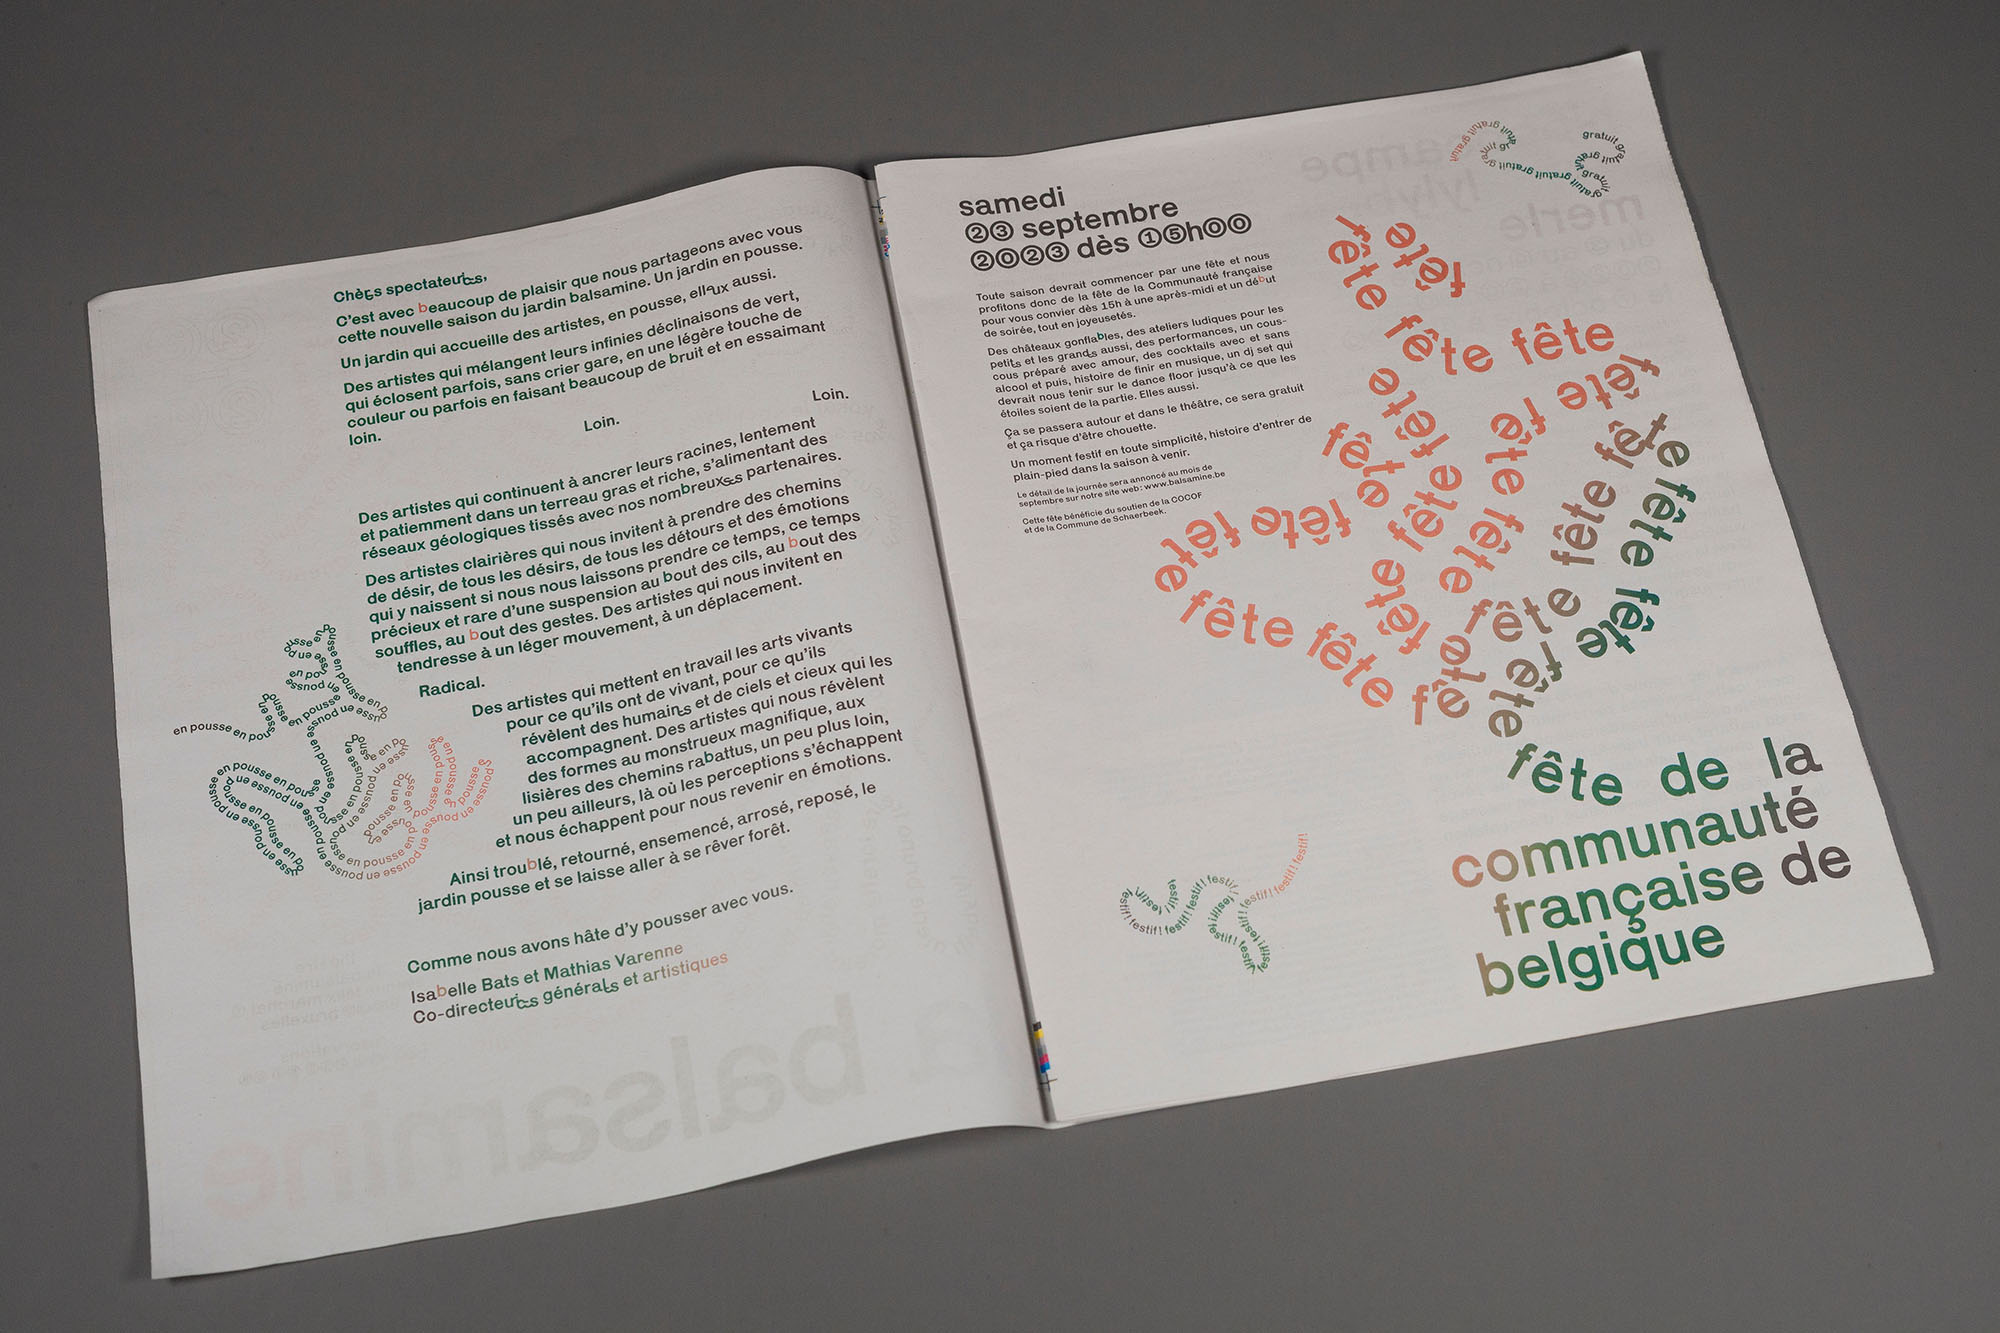 C'est avec beaucoup de plaisir que nous partageons avec vous
cette nouvelle saison du jardin balsamine. Un jardin en pousse.
Un jardin qui accueille des artistes, en pousse, aussi.
Des artistes qui mélangent leurs infinies déclinaisons de vert,
qui éclosent parfois, sans crier gare, en une légère touche de
couleur ou parfois en faisant beaucoup de bruit et en essaimant
loin.
Loin.
Loin.
Des artistes qui continuent à ancrer leurs racines, lentement
et patiemment dans un terreau gras et riche, s'alimentant des
réseaux géologiques tissés avec nos partenaires.
Des artistes clairières qui nous invitent à prendre des chemins
de désir, de tous les désirs, de tous les détours et des émotions
qui y naissent si nous nous laissons prendre ce temps, ce temps
précieux et rare d'une suspension au bout des cils, au bout des
souffles, au bout des gestes. Des artistes qui nous invitent en
tendresse à un léger mouvement, à un déplacement.
Radical.
Des artistes qui mettent en travail les arts vivants
pour ce qu'ils ont de vivant, pour ce qu'ils
révèlent des et de ciels et cieux qui les
accompagnent. Des artistes qui nous révèlent
des formes au monstrueux magnifique, aux
lisières des chemins rabattus, un peu plus loin,
un peu ailleurs, là où les perceptions s'échappent
et nous échappent pour nous revenir en émotions.
Ainsi troublé, retourné, ensemencé, arrosé, reposé, le
jardin pousse et se laisse aller à se rêver forêt.
Comme nous avons hâte d'y pousser avec vous.
Isabelle Bats et Mathias Varenne
et artistiques
en pousse en pousse en pousse
samedi
23 septembre
2023 dès 15h00
Toute saison devrait commencer par une fête et nous
profitons donc de la fête de la Communauté française
pour vous convier dès 15h à une après-midi et un début
de soirée, tout en joyeusetés.
Des châteaux gonflables, des ateliers ludiques pour les
petits et les grands aussi, des performances, un cous-
cous préparé avec amour, des cocktails avec et sans
alcool et puis, histoire de finir en musique, un dj set qui
devrait nous tenir sur le dance floor jusqu'à ce que les
étoiles soient de la partie. Elles aussi.
Ça se passera autour et dans le théâtre, ce sera gratuit
et ça risque d'être chouette.
Un moment festif en toute simplicité, histoire d'entrer de
plain-pied dans la saison à venir.
Le détail de la journée sera annoncé au mois de
septembre sur notre site web : www.balsamine.be
Cette fête bénéficie du soutien de la COCOF
et de la Commune de Schaerbeek.
gratuit gratuit gratuit gratuit
fête fête fête fête fête fête
festif! festif! festif! festif! festif!
fête de la
communauté
française de
belgique